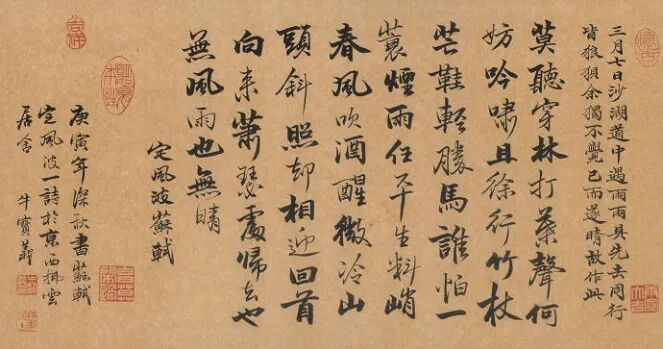 三月七日沙湖道中遇雨雨具先去同行
皆狼狽余獨不覺已而遂晴故作此
莫聽穿林打葉聲何
妨吟嘯且徐行竹杖
芒鞋輕勝馬誰怕一
蓑煙雨任平生料峭
春風吹酒醒微冷山
頭斜照却相迎回首
向來蕭瑟處歸去也
無風雨也無晴
定風波蘇軾
庚寅年深秋書蘇軾
定風波一詩於京西拂雲
居舍 牛寶義
吉祥